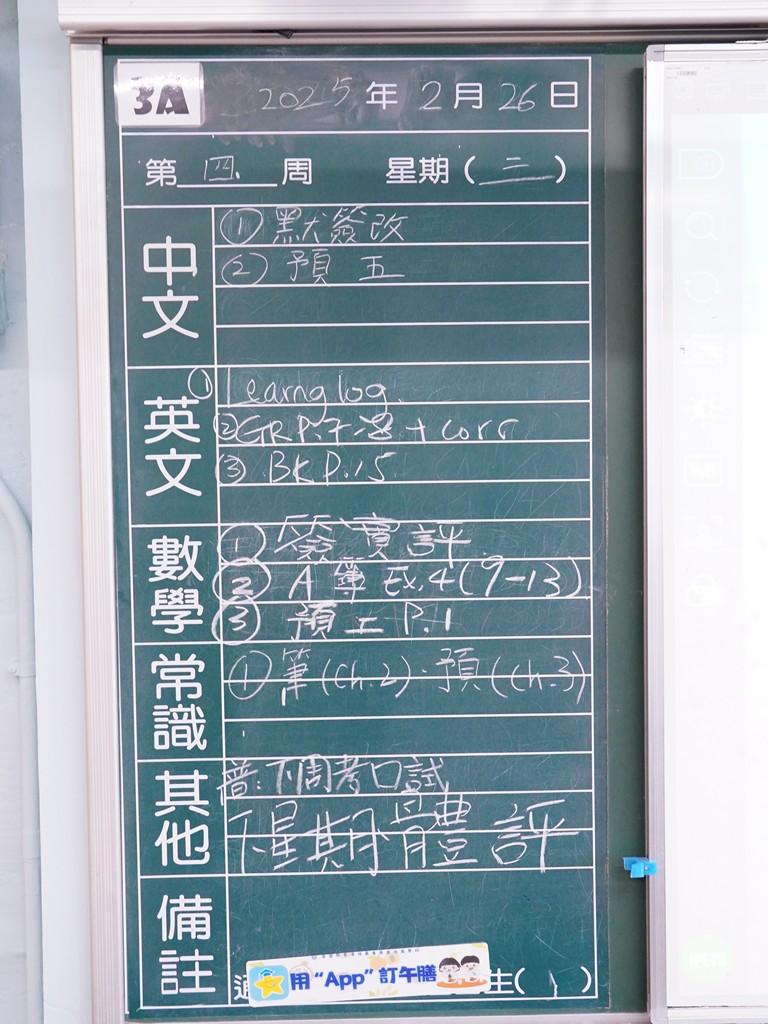 3A
2025年2月26日
第四周 星期(三)
中文
① 默簽改
② 預 五
英文
① Learng log.
② GRP. + corr
③ BK P.15
數學
① 簽實評
② A 簿 Ex.4(9-13)
③ 預工 P.1
常識
① 筆(ch.2)·預(ch.3)
其他
普:下周考口試
下星期體評
備註
用“App”訂午膳
生( )